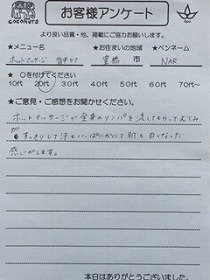 COCONUTS
お客様アンケート
Spa
より良い品質・他、掲載にご協力お願いします。
★メニュー名 ★お住まいの地域 ★ペンネーム
ホットマッサージ 背中ケア 豊橋 市 NAR
★ ○を付けてください
10代 20代 30代 40代 50代 60代 70代~
★ご意見・ご感想をお聞かせください。
ホットマッサージで全身のリンパを流してもらってむくみ
が すっきりして汗もいっぱいかいて肌も白くなった
感じがします。
本日はありがとうございました。